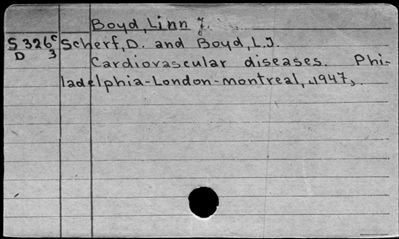 Boyd, Linn J.
S 326c Scherf, D. and Boyd, L.J.
D 3 Cardiovascular diseases. Phi-
ladelphia-London-montreal, 1947.